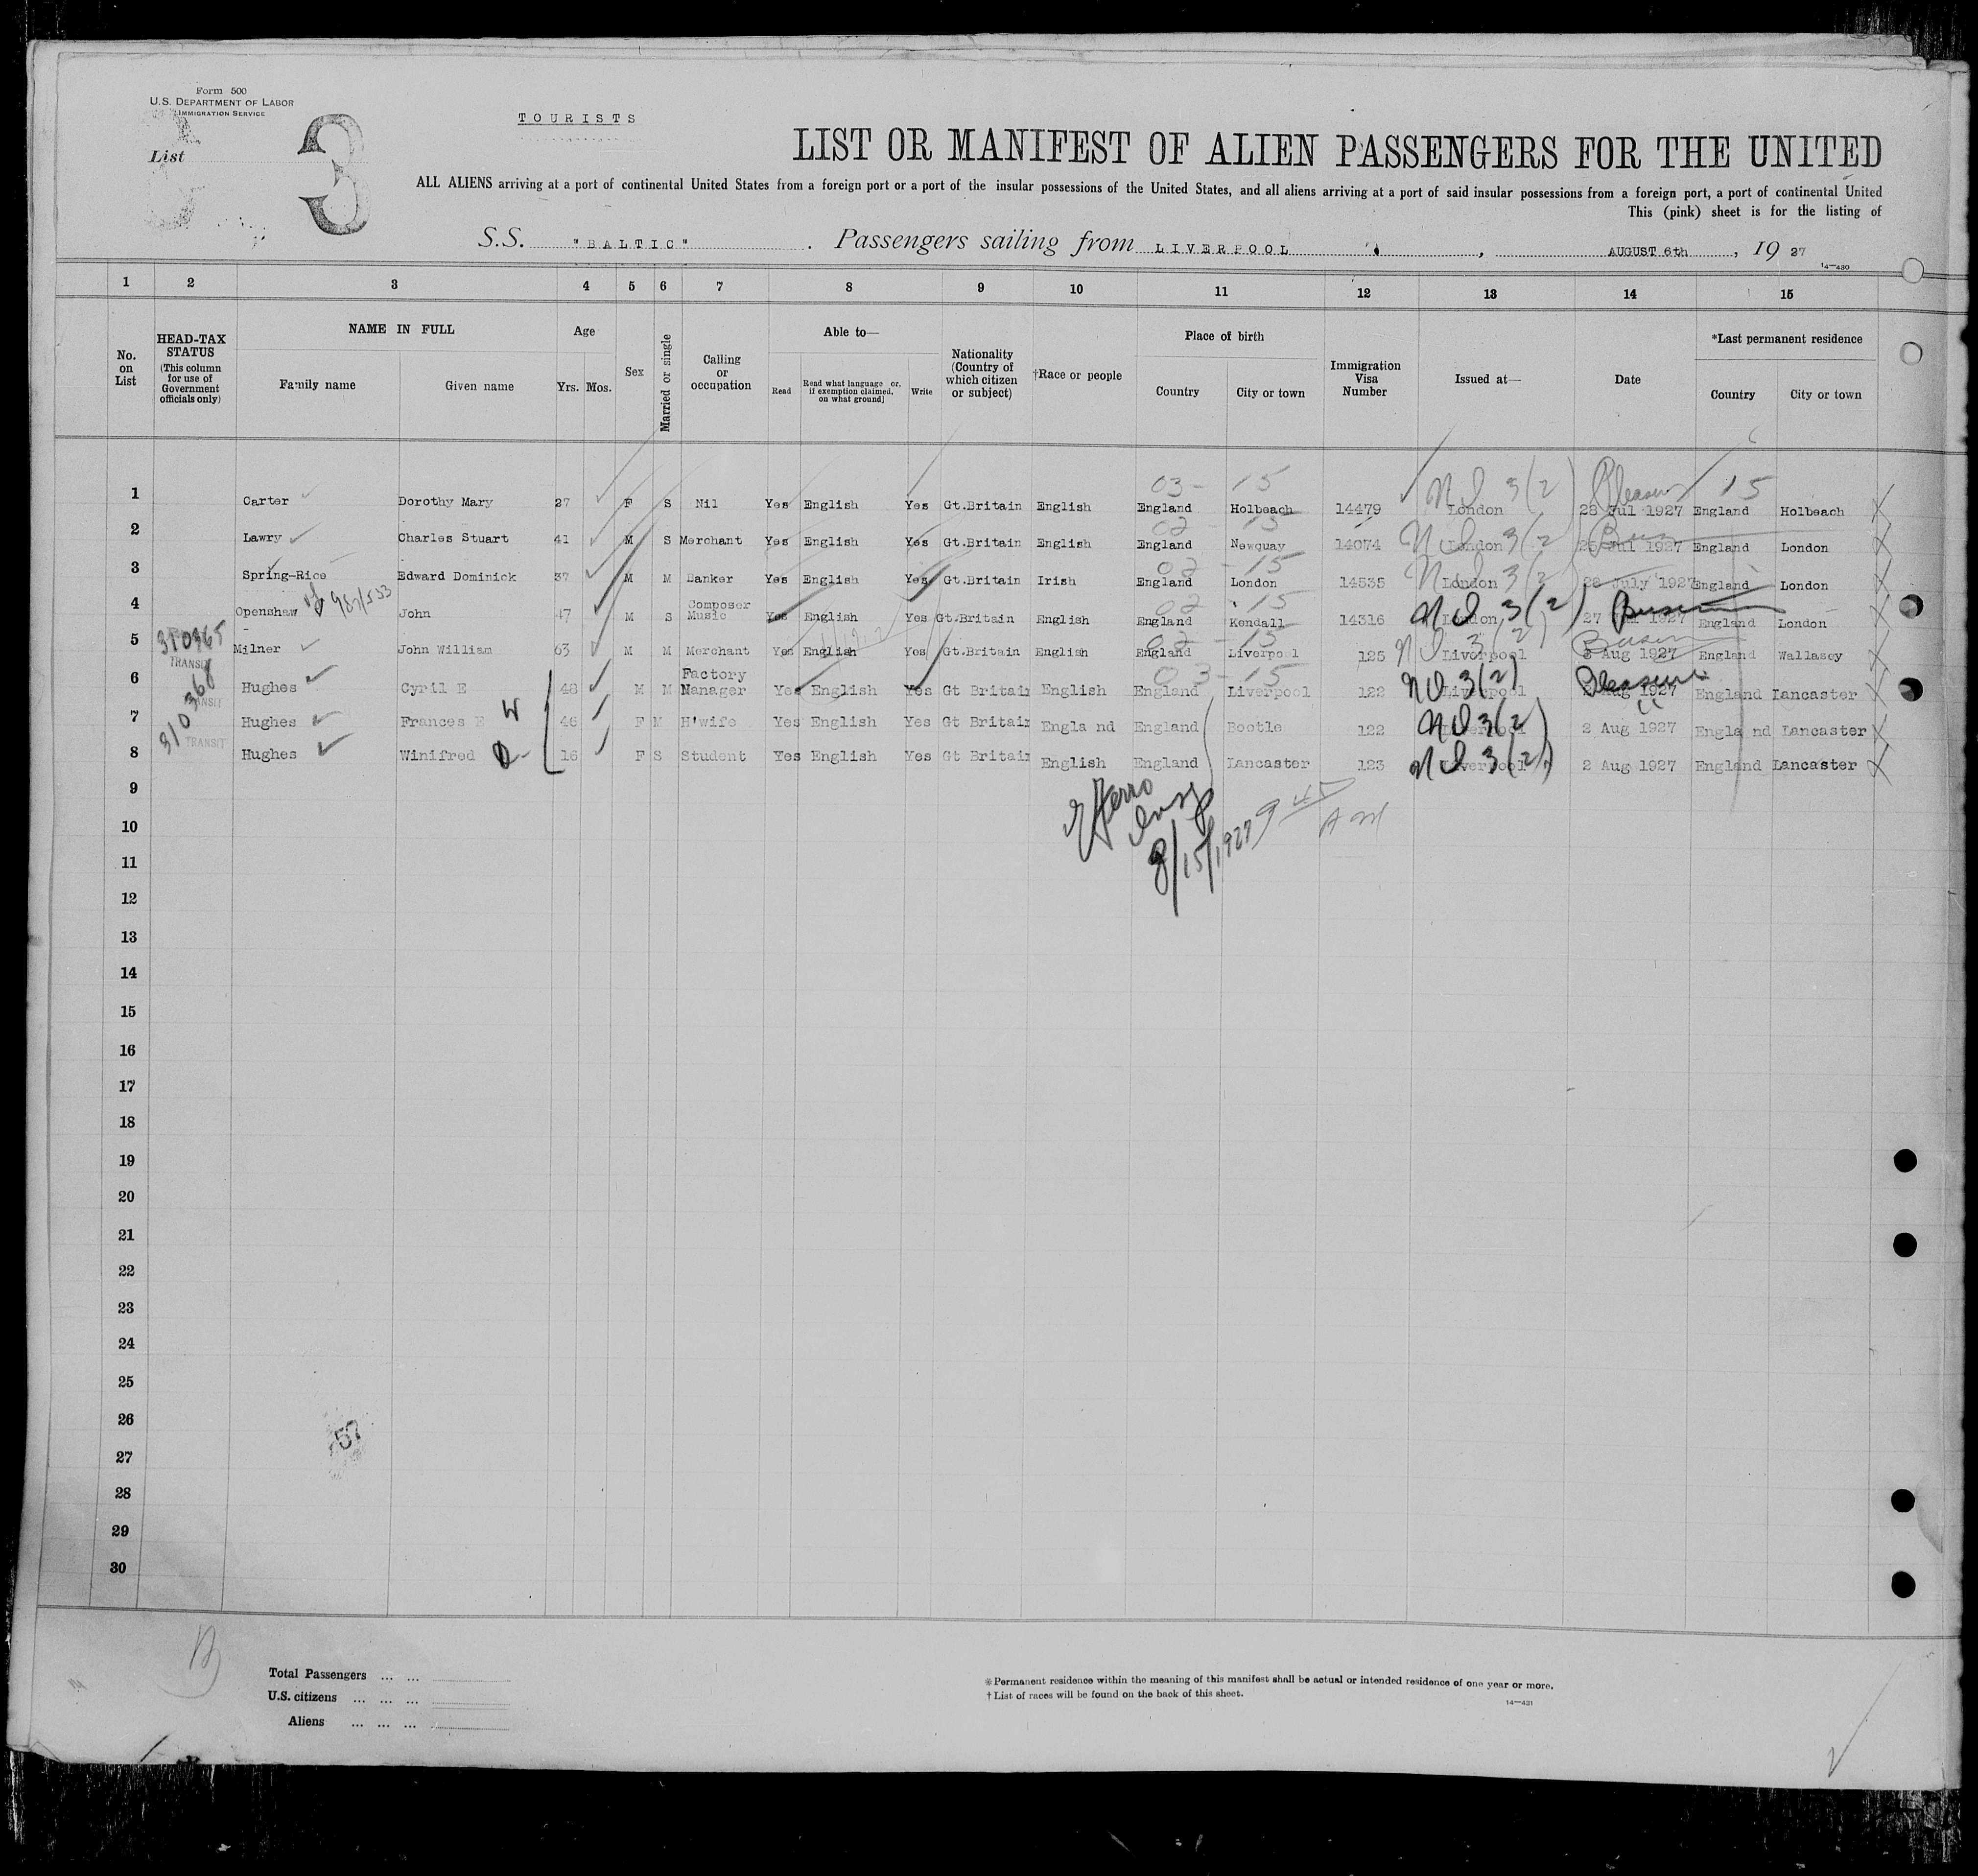 Form 500
U.S. DEPARTMENT OF LABOR
IMMIGRATION SERVICE
List 3
TOURISTS
LIST OR MANIFEST OF ALIEN PASSENGERS FOR THE UNITED
ALL ALIENS arriving at a port of continental United States from a foreign port or a port of the insular possessions of the United States, and all aliens arriving at a port of said insular possessions from a foreign port, a port of continental United
This (pink) sheet is for the listing of
S.S. "BALTIC" . Passengers sailing from LIVERPOOL , AUGUST 6th , 19 27
14—430
1 2 3 4 5 6 7 8 9 10 11 12 13 14 15
No. on List
HEAD-TAX STATUS (This column for use of Government officials only)
NAME IN FULL
Family name Given name
Age
Yrs. Mos.
Sex
Married or single
Calling or occupation
Able to—
Read Read what language or, if exemption claimed, on what ground] Write
Nationality (Country of which citizen or subject)
†Race or people
Place of birth
Country City or town
Immigration Visa Number
Issued at—
Date
*Last permanent residence
Country City or town
03- 15 N I 3(2) Pleasure 15
1 Carter Dorothy Mary 27 F S Nil Yes English Yes Gt.Britain English England Holbeach 14479 London 28 Jul 1927 England Holbeach
02 - 15 N I 3(2) Bus
2 Lawry Charles Stuart 41 M S Merchant Yes English Yes Gt.Britain English England Newquay 14074 London Jul 1927 England London
02 - 15 N I 3(2)
3 Spring-Rice Edward Dominick 37 M M Banker Yes English Yes Gt.Britain Irish England London 14535 London 28 July 1927 England London
02 15 N I 3(2)
4 Openshaw John 47 M S Composer Music Yes English Yes Gt.Britain English England Kendall 14316 London 27 1927 England London
02 - 15 N I 3(2)
5 310365 TRANSIT Milner John William 63 M M Merchant Yes English Yes Gt.Britain English England Liverpool 125 Liverpool Aug 1927 England Wallasey
03-15 N I 3(2) Pleasure
6 310368 TRANSIT Hughes Cyril E 48 M M Factory Manager Yes English Yes Gt Britain English England Liverpool 122 Liverpool Aug 1927 England Lancaster
7 TRANSIT Hughes Frances E W 46 F M H'wife Yes English Yes Gt Britain Engla nd England Bootle 122 N I 3(2) Liverpool 2 Aug 1927 Engla nd Lancaster
8 Hughes Winifred D 16 F S Student Yes English Yes Gt Britain English England Lancaster 123 N I 3(2) Liverpool 2 Aug 1927 England Lancaster
9
8/15/1927 9 45 AM
10
11
12
13
14
15
16
17
18
19
20
21
22
23
24
25
26
57
27
28
29
30
Total Passengers ... ...
U.S. citizens ... ... ...
Aliens ... ... ...
*Permanent residence within the meaning of this manifest shall be actual or intended residence of one year or more.
†List of races will be found on the back of this sheet.
14—431